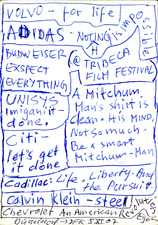 VOLVO - for life
ADIDAS - NOTHING IS IMPOSSIBLE
BUDWEISER
EXSPECT
EVERYTHING
@ TRIBECA
FILM FESTIVAL
UNISYS
Imigani it
done.
Citi -
let's get
it done
A Mitchum
Man's shirt is
clean. His MIND,
Not so much.
Be a smart
Mitchum-Man
Cadillac: Life. Liberty. And
the Pursuit.
Calvin Klein - steel
Chevrolet An American Revolution